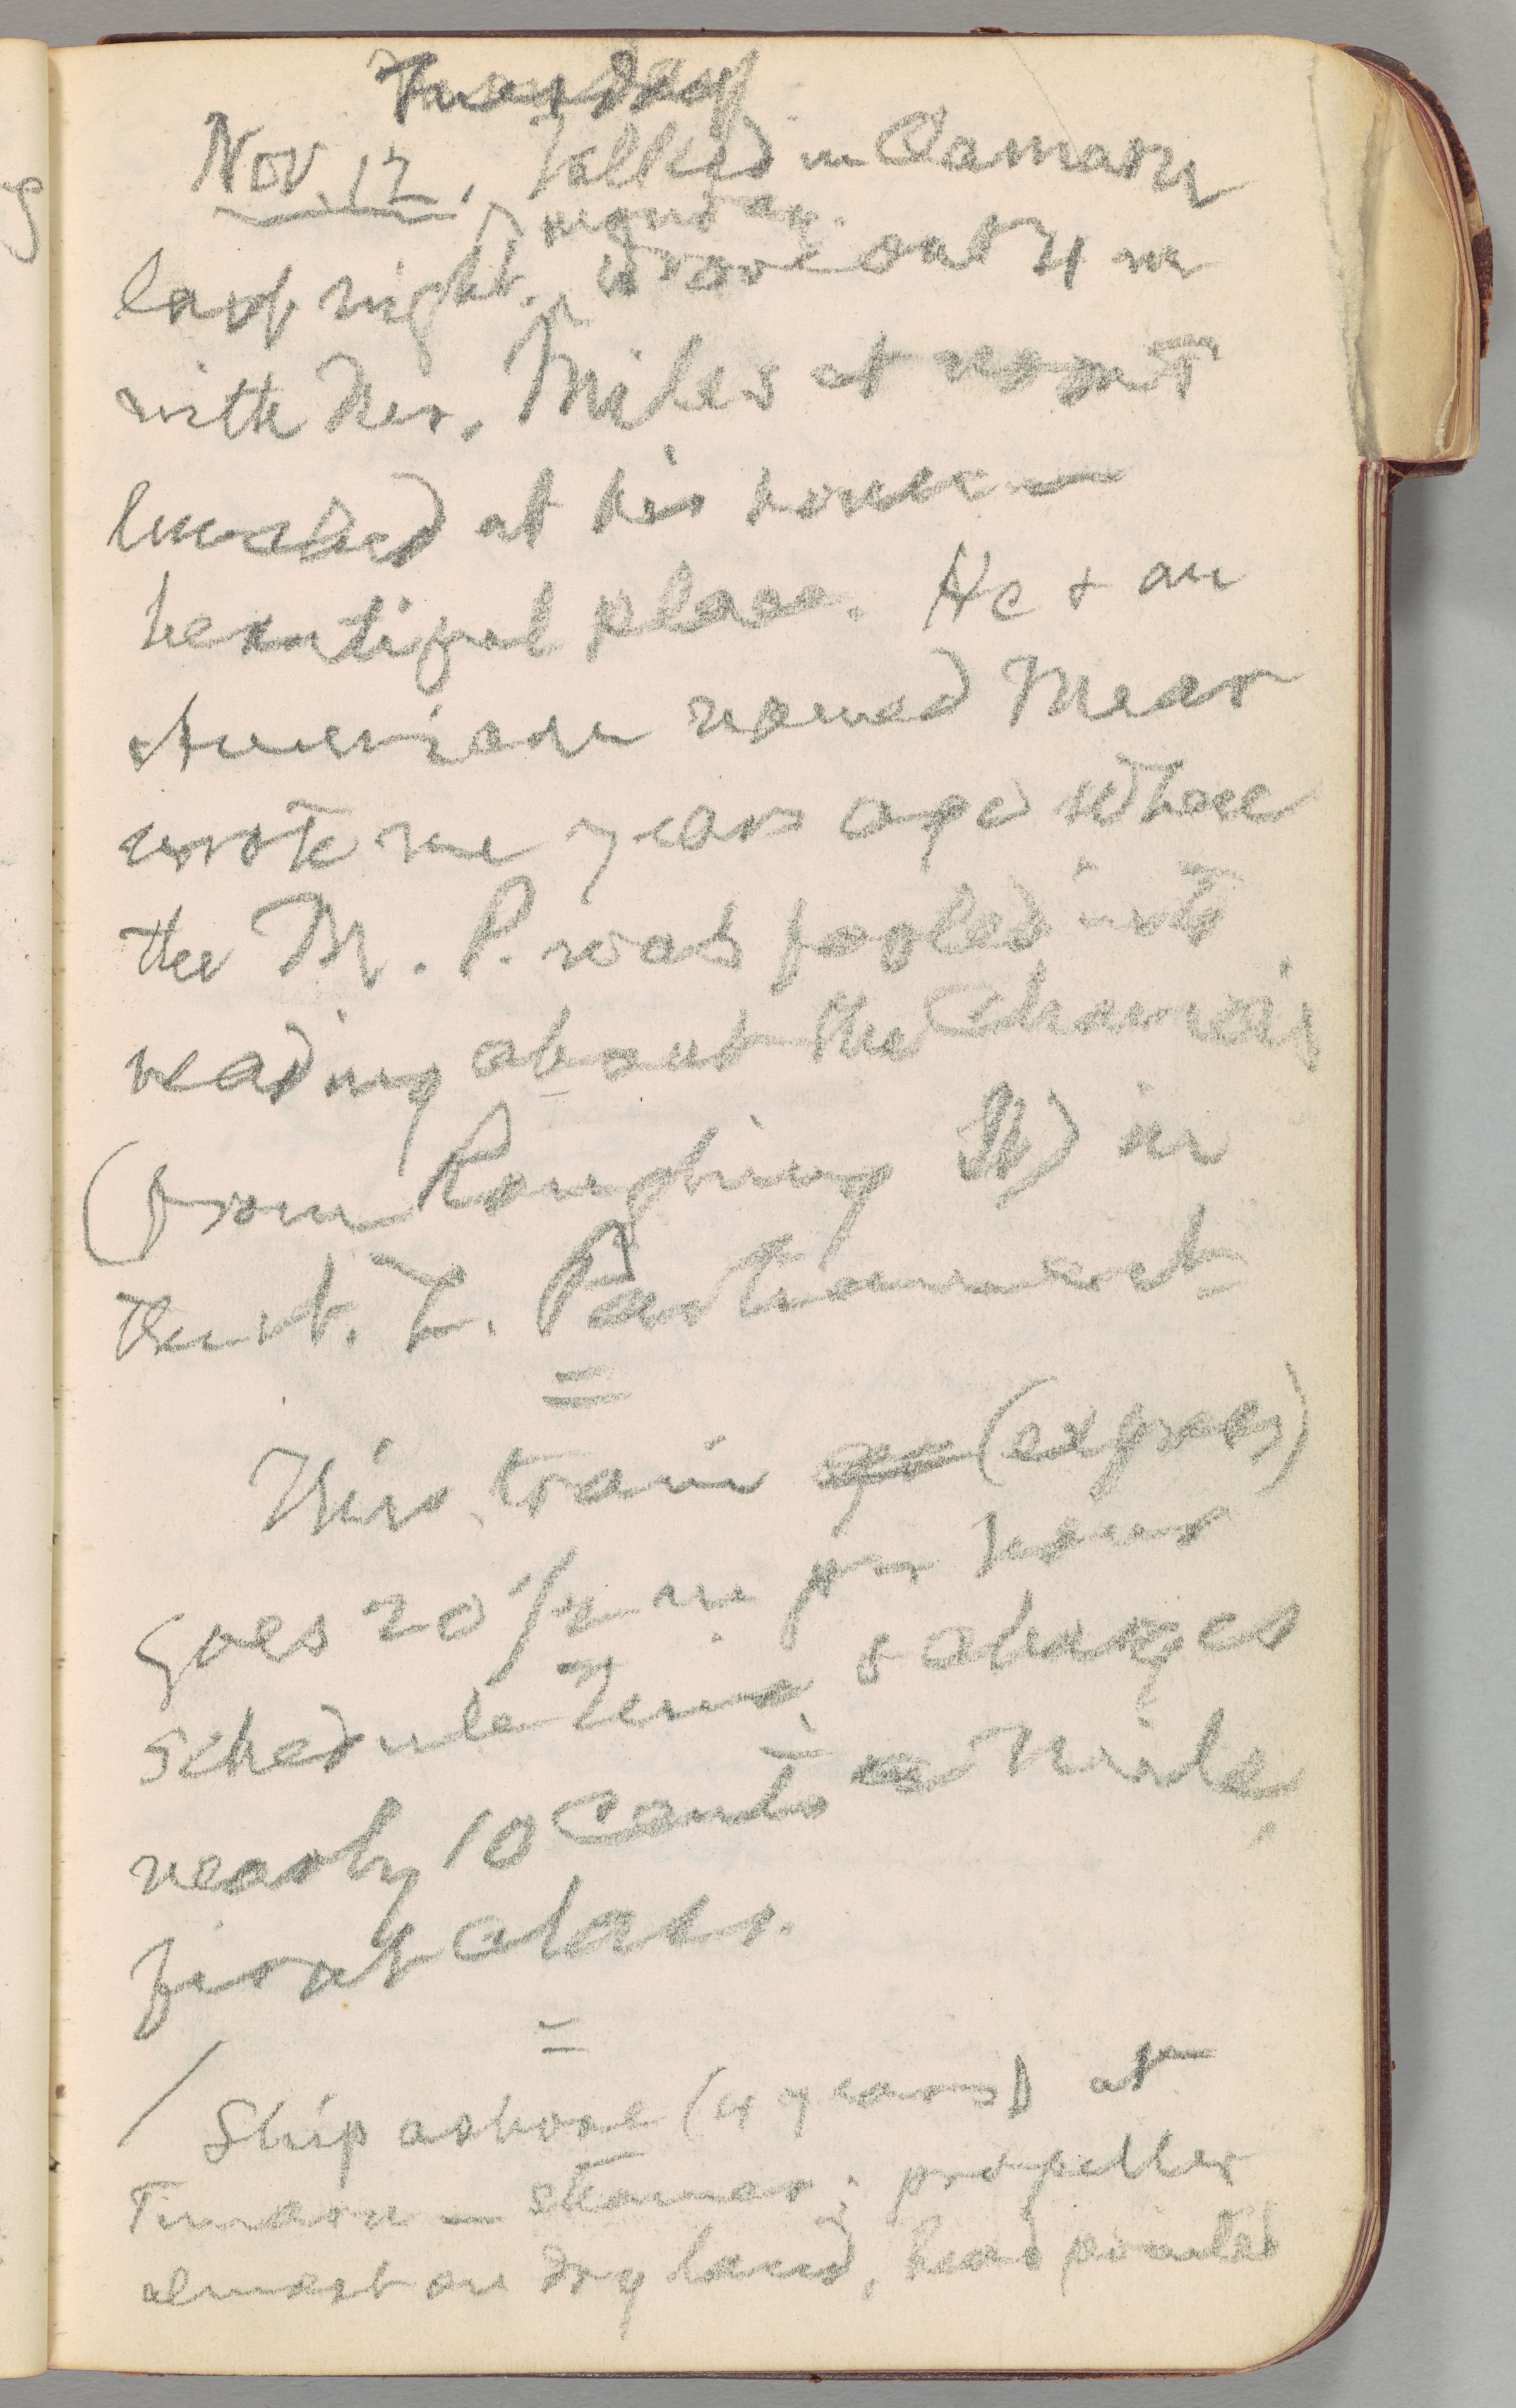 Tuesday
Nov. 12. Talked in Oamaru
last night. Monday. Drove out 4 m
with Mr. Miles at noon &
lunched at his house —
beautiful place. He + an
American named Mear
wrote me years ago where
the M. P. was fooled into
reading about the
(from Roughing It) in
the Parliament
=
This train (express)
goes 20 1/2 m per hour
schedule time, & charges
nearly 10 cents a mile,
first class.
=
/ Ship ashore (4 years) at
Timaru — steamer; propeller
almost on dry land, head pointed